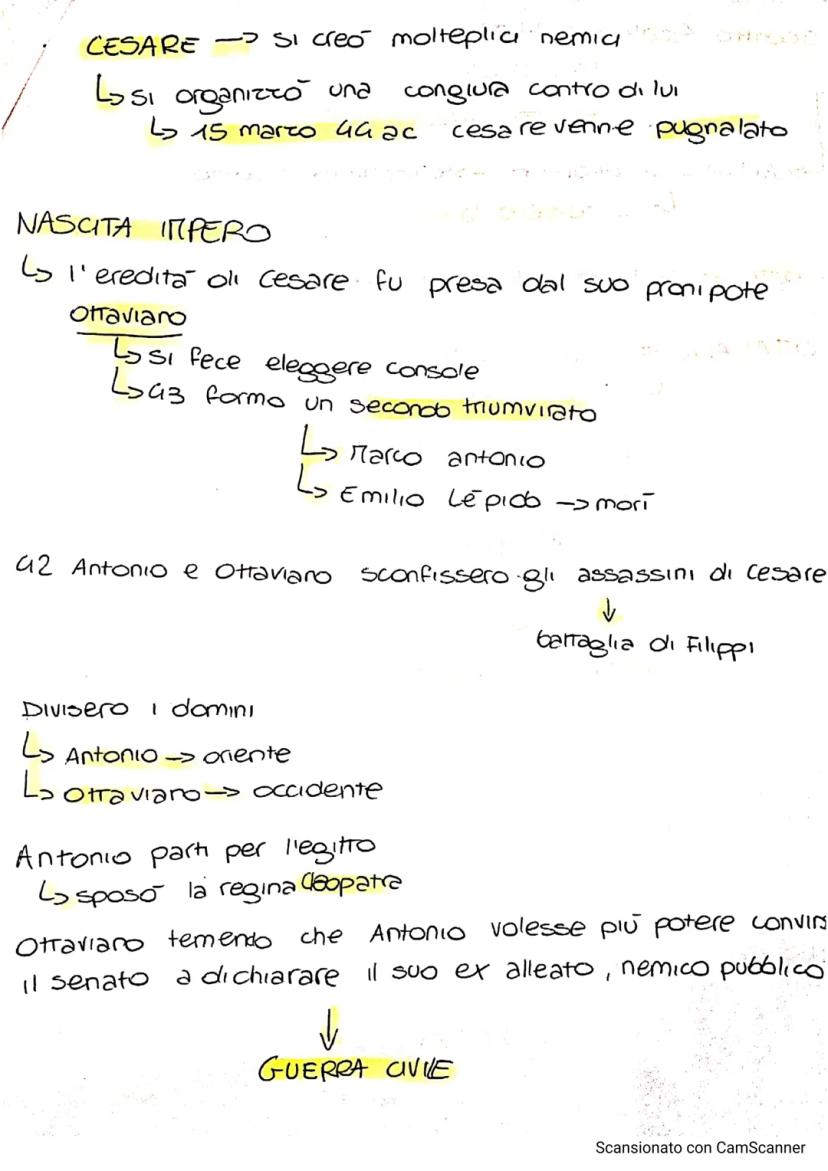 CESARE → si creò molteplici nemici
↳ si organizzò una congiura contro di lui
↳ 15 marzo 44 ac cesare venne pugnalato
NASCITA IMPERO
↳ l'eredità di Cesare fu presa dal suo pronipote
Ottaviano
↳ si fece eleggere console
↳ 43 formo un secondo triumvirato
↳ Marco antonio
↳ Emilio Lèpido → morì
42 Antonio e Ottaviano sconfissero gli assassini di Cesare
↓
battaglia di Filippi
Divisero i domini
↳ Antonio → oriente
↳ Ottaviano → occidente
Antonio partì per l'egitto
↳ sposò la regina Cleopatra
Ottaviano temendo che Antonio volesse più potere convins
il senato a dichiarare il suo ex alleato, nemico pubblico
↓
GUERRA CIVILE
Scansionato con CamScanner